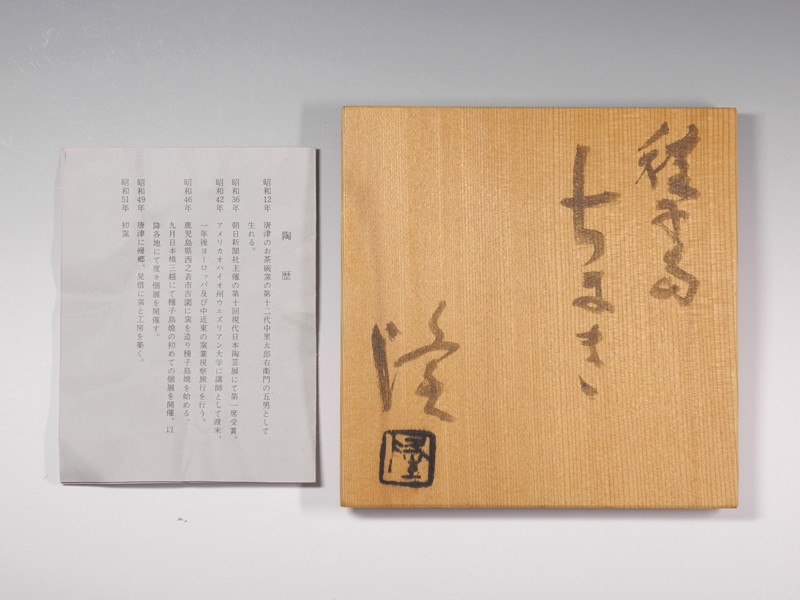 陶歴
昭和12年 唐津のお茶碗窯の第十二代中里太郎右衛門の五男として
生れる。
昭和36年 朝日新聞社主催の第十回現代日本陶芸展にて第一席受賞。
昭和42年 アメリカオハイオ州ウェズリアン大学に講師として渡米。
一年後ヨーロッパ及び中近東の窯業視察旅行を行う。
昭和46年 鹿児島県西之表市古園に窯を造り種子島焼を始める。
九月日本橋三越にて種子島焼の初めての個展を開催。以
降各地にて度々個展を開催す。
昭和49年 唐津に帰郷、見借に窯と工房を築く。
昭和51年 初窯
種子島
隆
隆